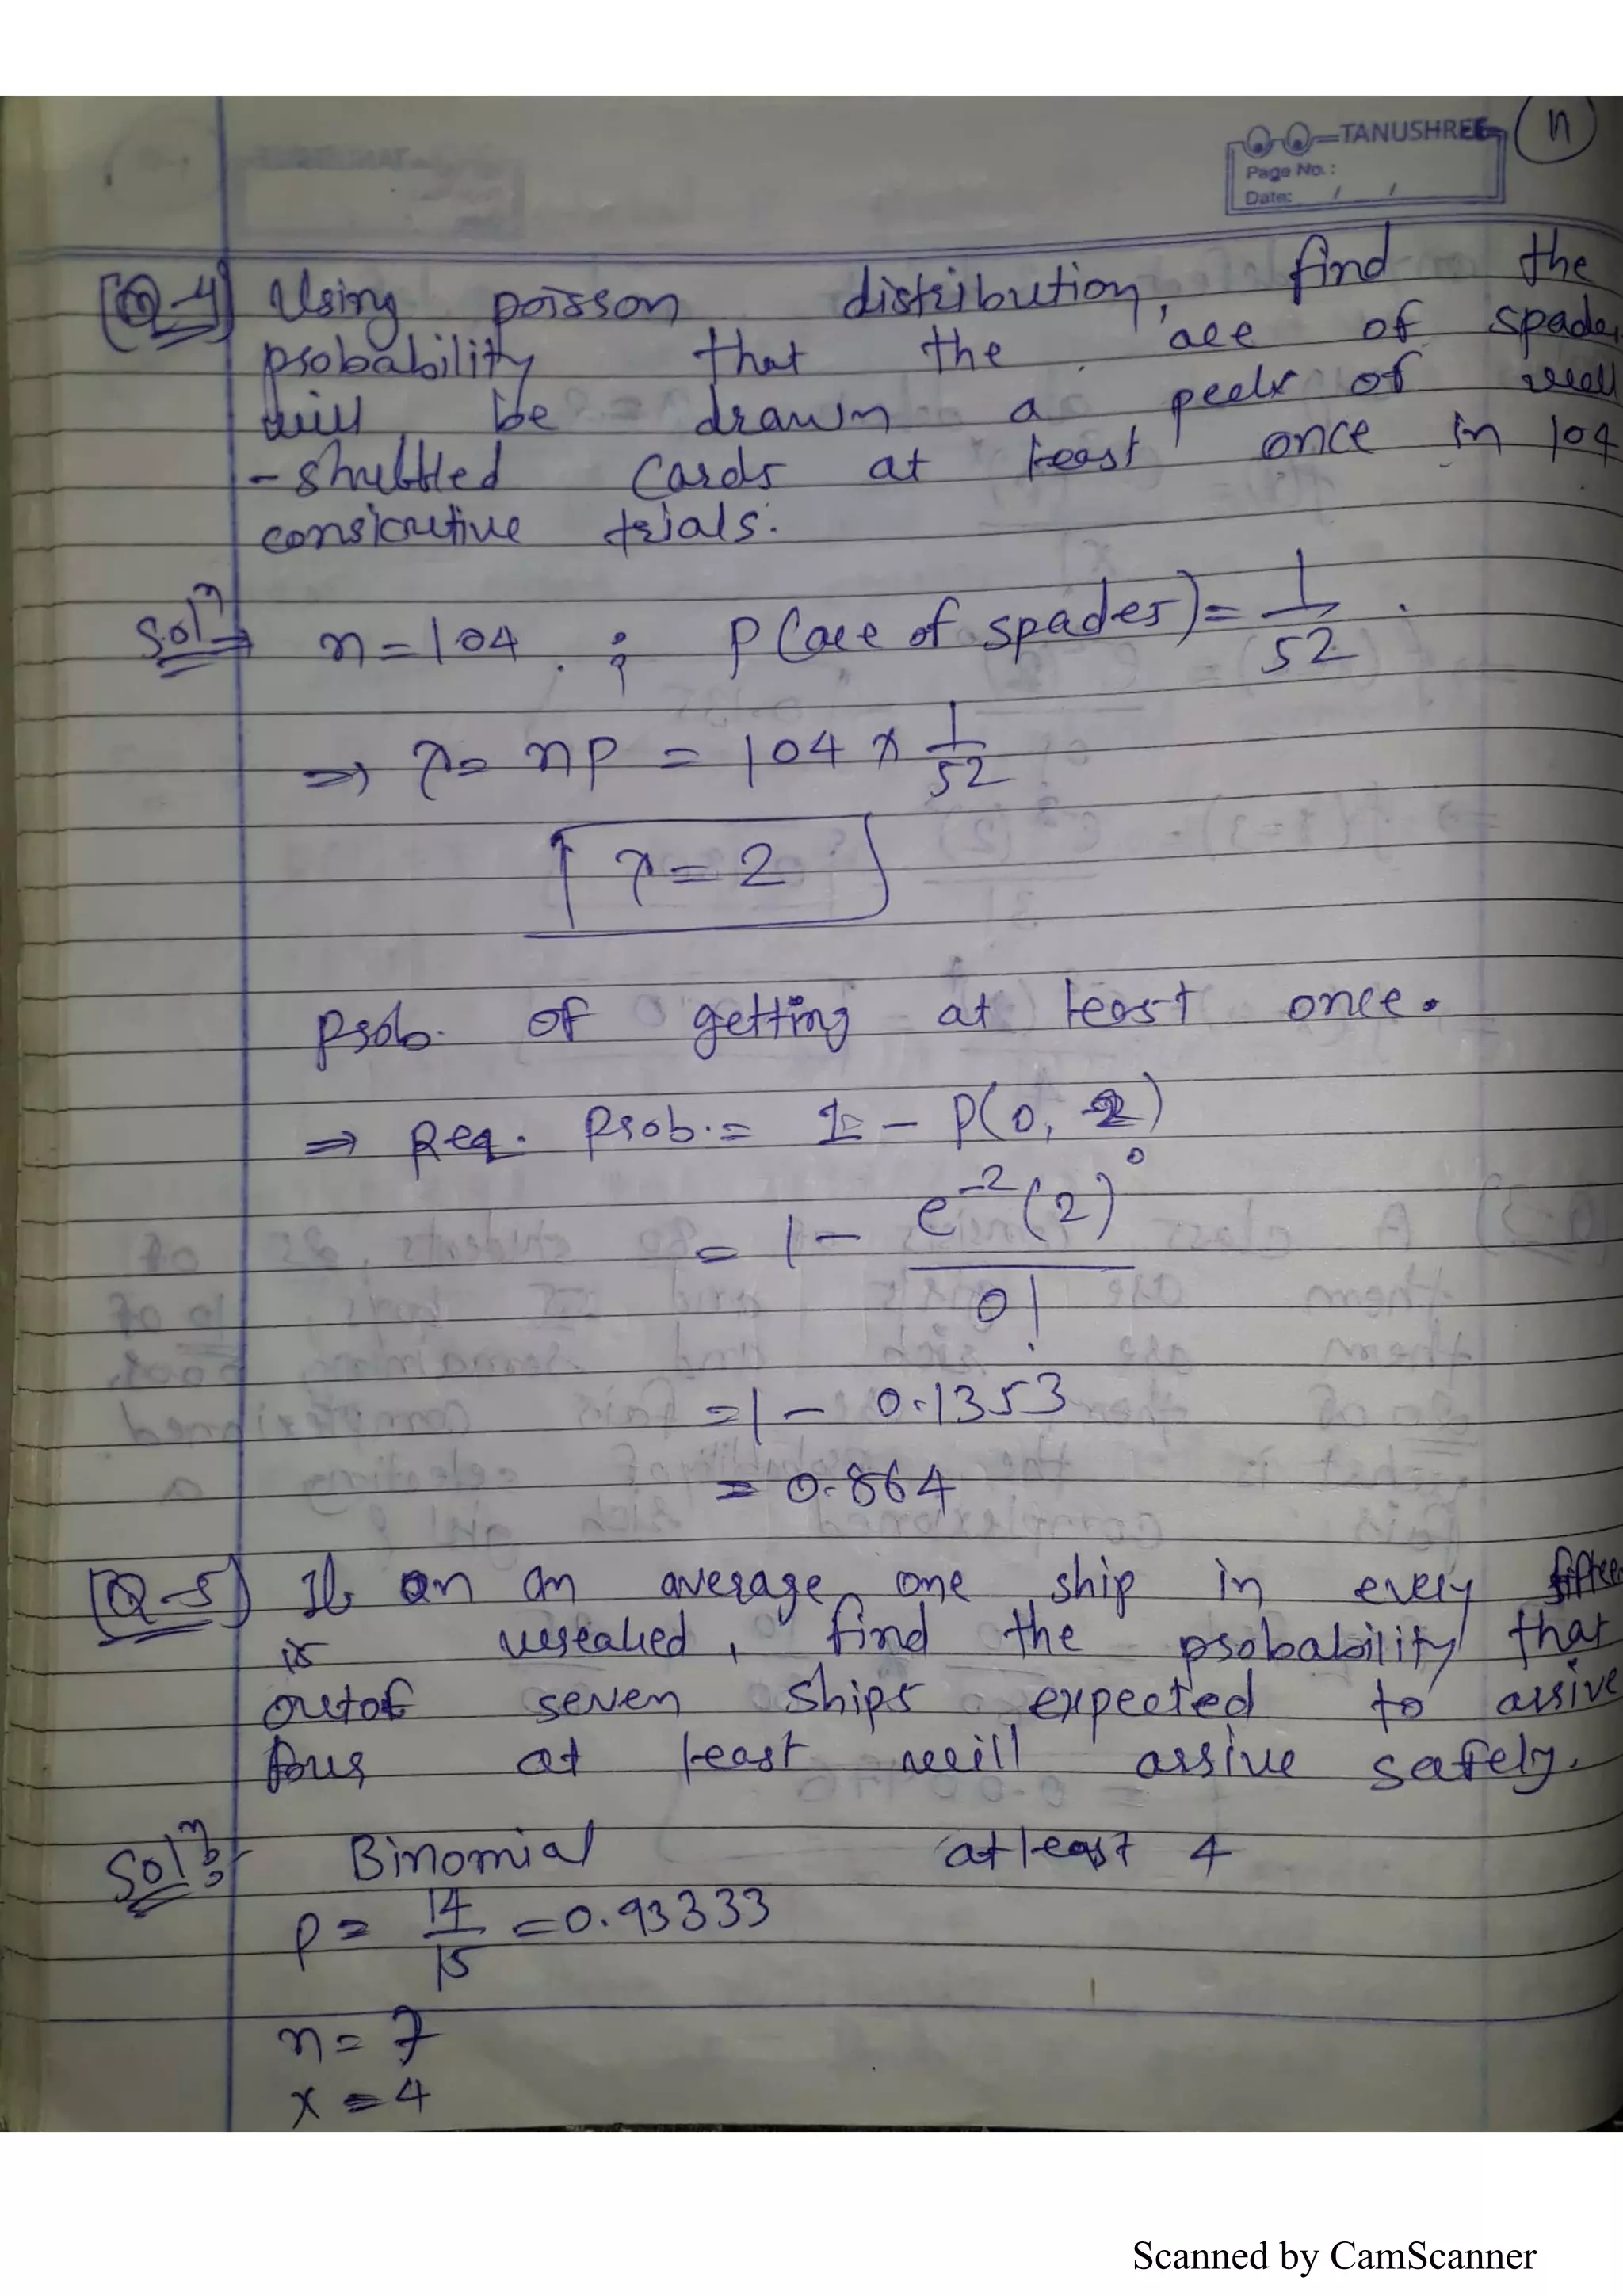 TANUSHREE
Page No.:
Date: / /
n
Q-4 Using poisson distribution, find the
probability that the 'ace of spade,
will be drawn a peck of well
- shuffled cards at least once in 104
consicutive trials.
Solⁿ ⇒ n = 104 . ; P(ace of spades) = 1/52 .
⇒ λ = np = 104 × 1/52
λ = 2
prob. of getting at least once.
⇒ Req. Prob. = 1 - P(0, 2)
= 1 - e⁻²(2)⁰ / 0!
= 1 - 0.1353
= 0.864
Q-5 If on an average one ship in every fifteen
is wrecked, find the probability that
out of seven ships expected to arrive
four at least will arrive safely.
Solⁿ :- Binomial at least 4
p = 14/15 = 0.93333
n = 7
x = 4
Scanned by CamScanner